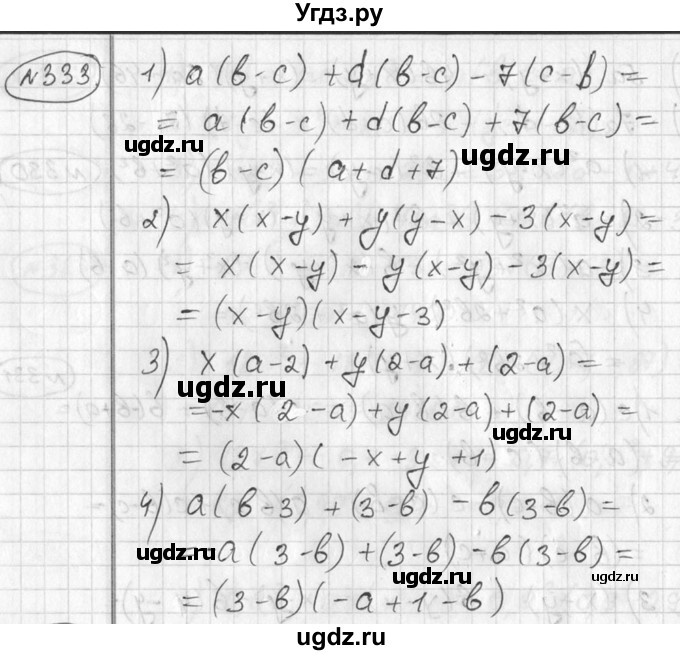 Угдз.ру
№333
1) a(b-c) + d(b-c) - 7(c-b) =
= a(b-c) + d(b-c) + 7(b-c) =
gdz.ru
ugdz.ru
= (b-c)(a+d+7)
2) x(x-y) + y(y-x) - 3(x-y) =
= x(x-y) - y(x-y) - 3(x-y) =
= (x-y)(x-y-3)
3) x(a-2) + y(2-a) + (2-a) =
ugdz.ru
= -x(2-a) + y(2-a) + (2-a) =
ugdz.ru
= (2-a)(-x+y+1)
4) a(b-3) + (3-b) - b(3-b) =
= -a(3-b) + (3-b) - b(3-b) =
ugdz.ru
ugdz.ru
ugdz.ru
= (3-b)(-a+1-b)
ugdz.ru